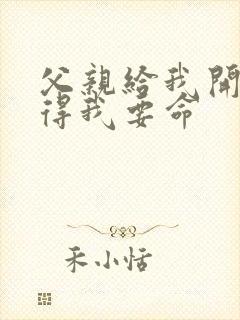 父親給我開
得我要命
禾小恬